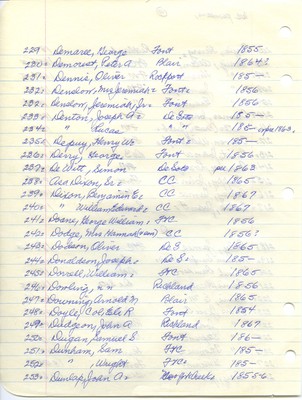 229. Demaree, George Font 1855
230. Demorest, Peter A. Blair 1864?
231. Dennis, Oliver Rockport 185—
232. Denslow, Mrs. Jeremiah Font. 1856
Denslow, Jeremiah, Jr. Font 1856
233. Denton, Joseph A. De Soto 185—
234. " Lucas " " 185—
235. Depuy, Henry W. Font. 185—
236. Derry, George Font 1856
237. De Witt, Simon DeSoto pre 1863
238. Dixon, Er. CC 1865
239. Dixon, Benjamin E. CC 1867
240. " William Edward CC 1867
241. Doane, George William FTC 1856
242. Dodge, Mrs. Hannah CC 1856?
243. Dodson, Oliver De S. 1865
244. Donaldson, Joseph De S. 185—
245. Dovell, William FTC 1865
246. Dowling, " " Richland 1856
247. Downing, Arnold M. Blair 1865
248. Doyle, Col. Ele R. Font 1854
249. Dudgeon, John A. Richland 1867
250. Duigan, Samuel E. Font 186—
251. Dunham, Sam FTC 185—
252. " , Wright FTC 185—
253. Dunlap, John A. 1855-6